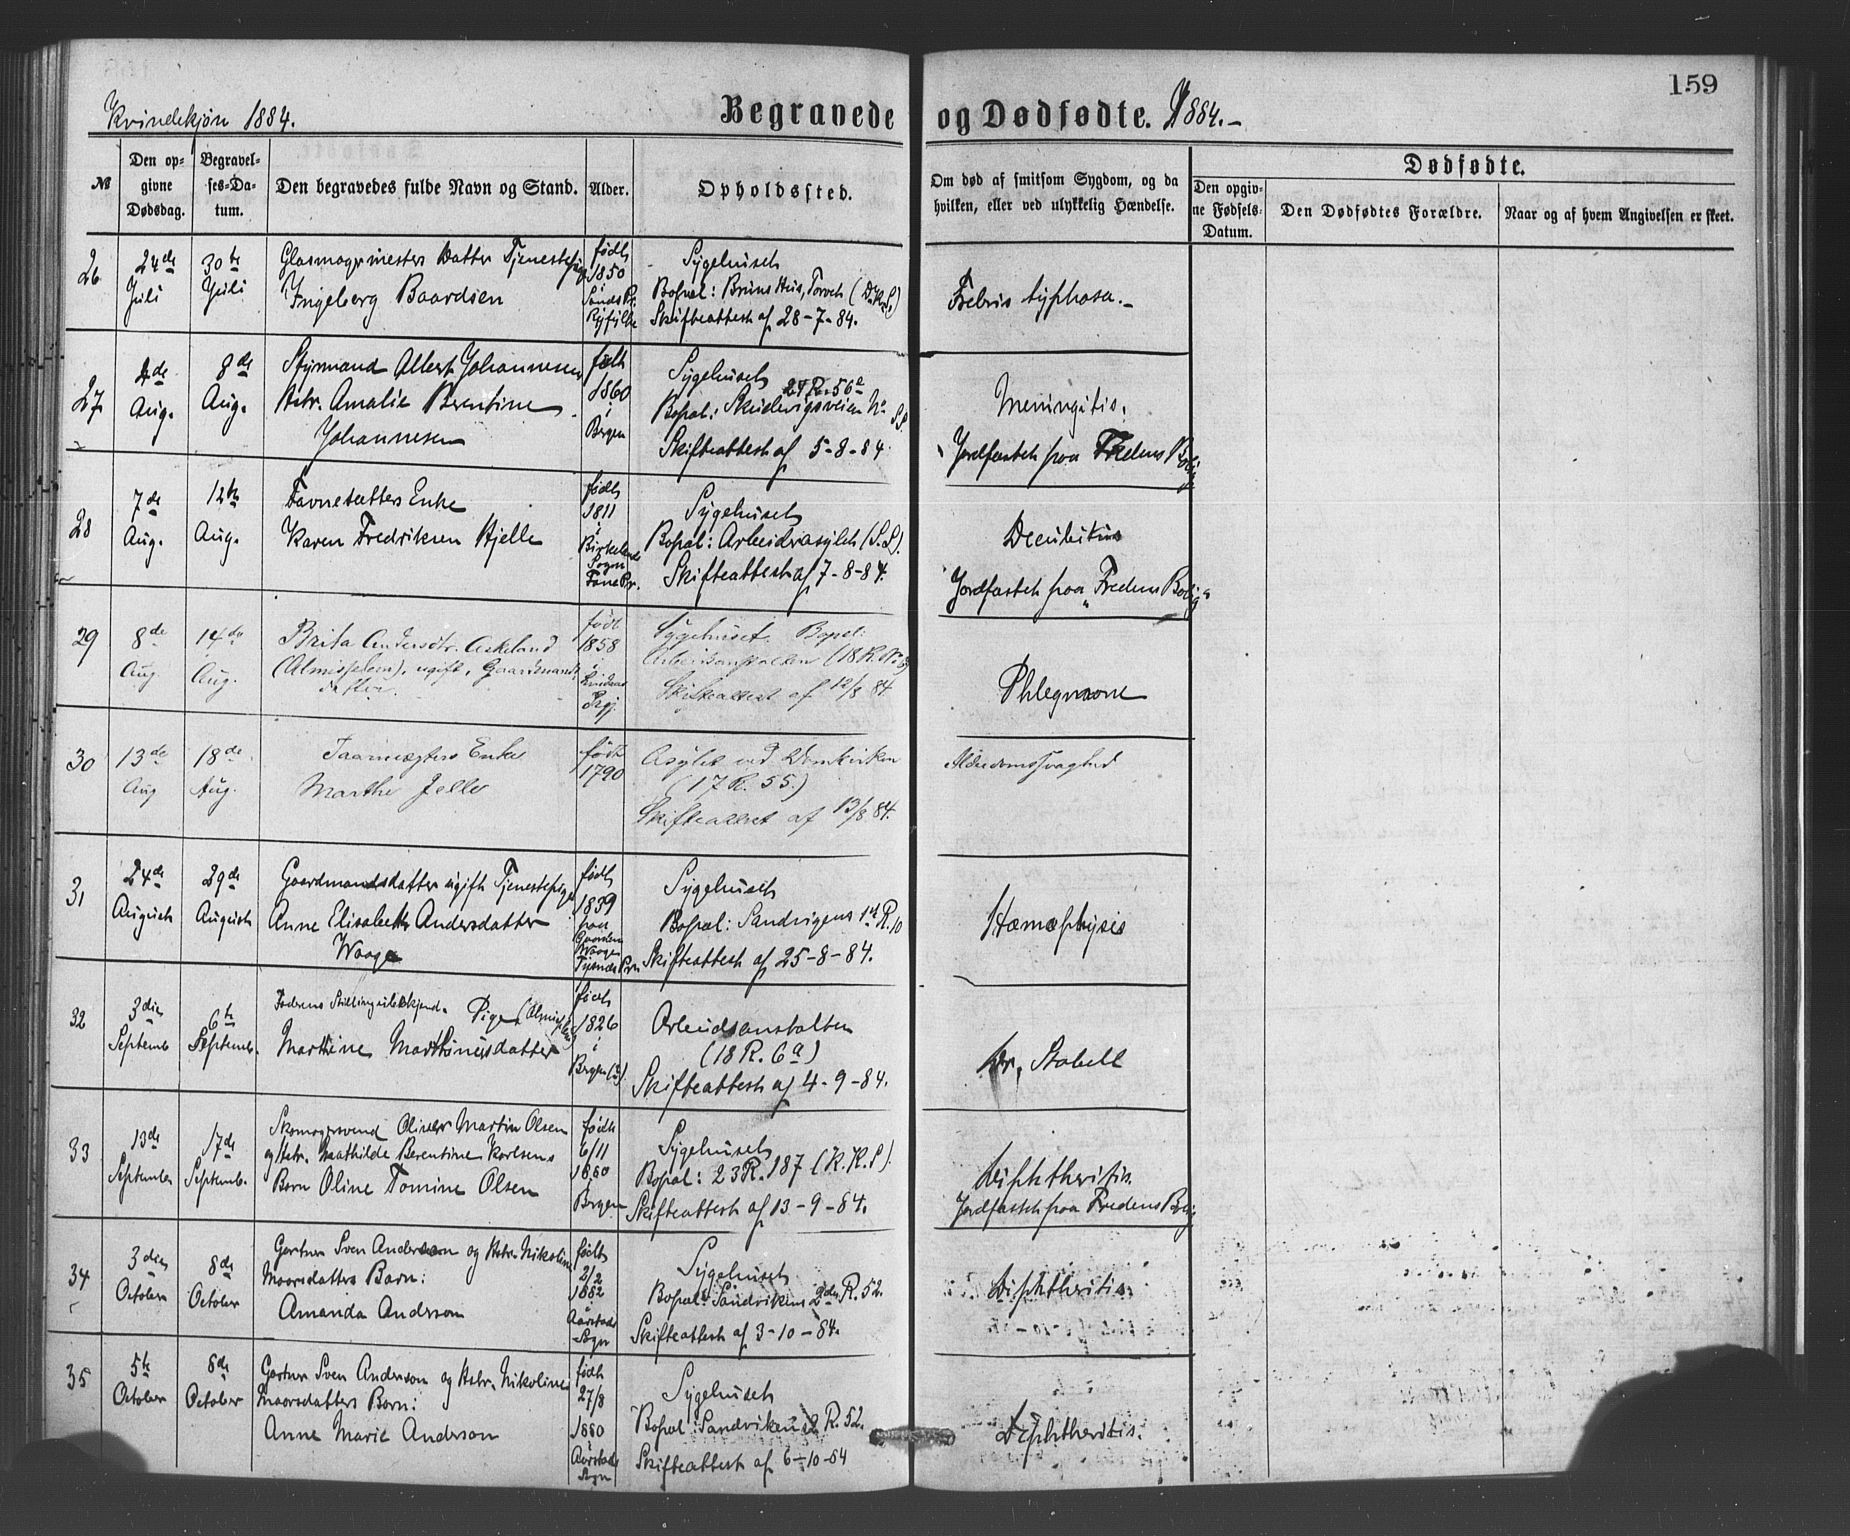 159
Kvindekjøn 1884.
Begravede og Dødfødte. 1884.-
№
Den opgivne Dødsdag.
Begravelses-Datum.
Den begravedes fulde Navn og Stand.
Alder.
Opholdssted.
Om død af smitsom Sygdom, og da hvilken, eller ved ulykkelig Hændelse.
Dødfødte.
Den opgivne Fødsels-Datum.
Den Dødfødtes Forældre.
Naar og af hvem Angivelsen er skeet.
26
24de Juli
30te Juli
Glasmagermesters Datter Tjenestepige
Ingeborg Baardsen
født
1850
i
Sands Pr.
Ryfylke
Sygehuset
Bopæl: Bruns Hus, Torvet
Skifteattest af 28-7-84.
Febris typhosa.-
27
2de Aug.
8de Aug.
Styrmand Albert Johannesen
Hstr. Amalie Berentine
Johannesen
født
1860
i
Bergen
Sygehuset
24 R. 56a
Bopæl: Skudevigsveien No
Skifteattest af 5-8-84.
Meningitis.
Jordfæstet paa Fredens Bolig
28
7de Aug.
12te Aug.
Favnesætters Enke
Karen Fredriksen Hjelle
født
1811
i
Birkelands
Sogn
Fane Pr.
Sygehuset
Bopæl: Arbeidsasylet (S.S).
Skifteattest af 7-8-84.
Decubitus
Jordfæstet paa "Fredens Bolig"
29
8de Aug
14de Aug.
Brita Andersdtr. Askeland
(Almisselem), ugift, Gaardmands
datter.
født
1858
i
Sygehuset. Bopæl:
Arbeidsanstalten (18 R. No 6)
Skifteattest af 12/8 84.
Phlegmone
30
13de Aug
18de Aug.
Enke
Marthe Jelle
født
1790
Asylet ved Domkirken
(17 R. 55.)
Skifteattest af 13/8 84.
Alderdomssvaghed
31
24de August
29de August
Gaardmandsdatter ugift Tjenestepige
Anne Elisabeth Andersdatter
Waage
født
1839
paa
Gaarden
Waage
Tysnæs Prn
Sygehuset
Bopæl: Sandvigens 1st R. 10
Skifteattest af 25-8-84.
Hæmophysis
32
3die Septemb
6te Septemb.
Faderens Stilling ubekjend. Pige. (Almisselem)
Marthine Marthinusdatter
født
1826
i
Bergen
Arbeidsanstalten
(18 R. 6a)
Skifteattest af 4-9-84.
Dr. Stabell
33
13de September
17de Septemb.
Skomagersvend Oliver Martin Olsen
og Hstr. Mathilde Berentine Karlsens
Barn Oline Tomine Olsen
født
6/11
1880
i
Bergen
Sygehuset
Bopæl: 23 R. 187 (K.K.S).
Skifteattest af 13-9-84.
Diphtheritis.
Jordfæstet paa Fredens Bolig
34
3die October
8de October
Gartner Sven Anderson og Hstr. Nikoline
Maarsdatters Barn:
Amanda Anderson
født
2/2
1882
i
Aarstads
Sogn
Sygehuset
Bopæl: Sandvikens 2den R. 52.
Skifteattest af 3-10-84.
Diphtheritis.
35
5te October
8de October
Gartner Sven Anderson og Hstr. Nikoline
Maarsdatters Barn:
Anne Marie Anderson
født
27/8
1880
i
Aarstads
Sogn
Sygehuset
Bopæl: Sandvikens 2 R. 52.
Skifteattest af 6-10-84
Diphtheritis.